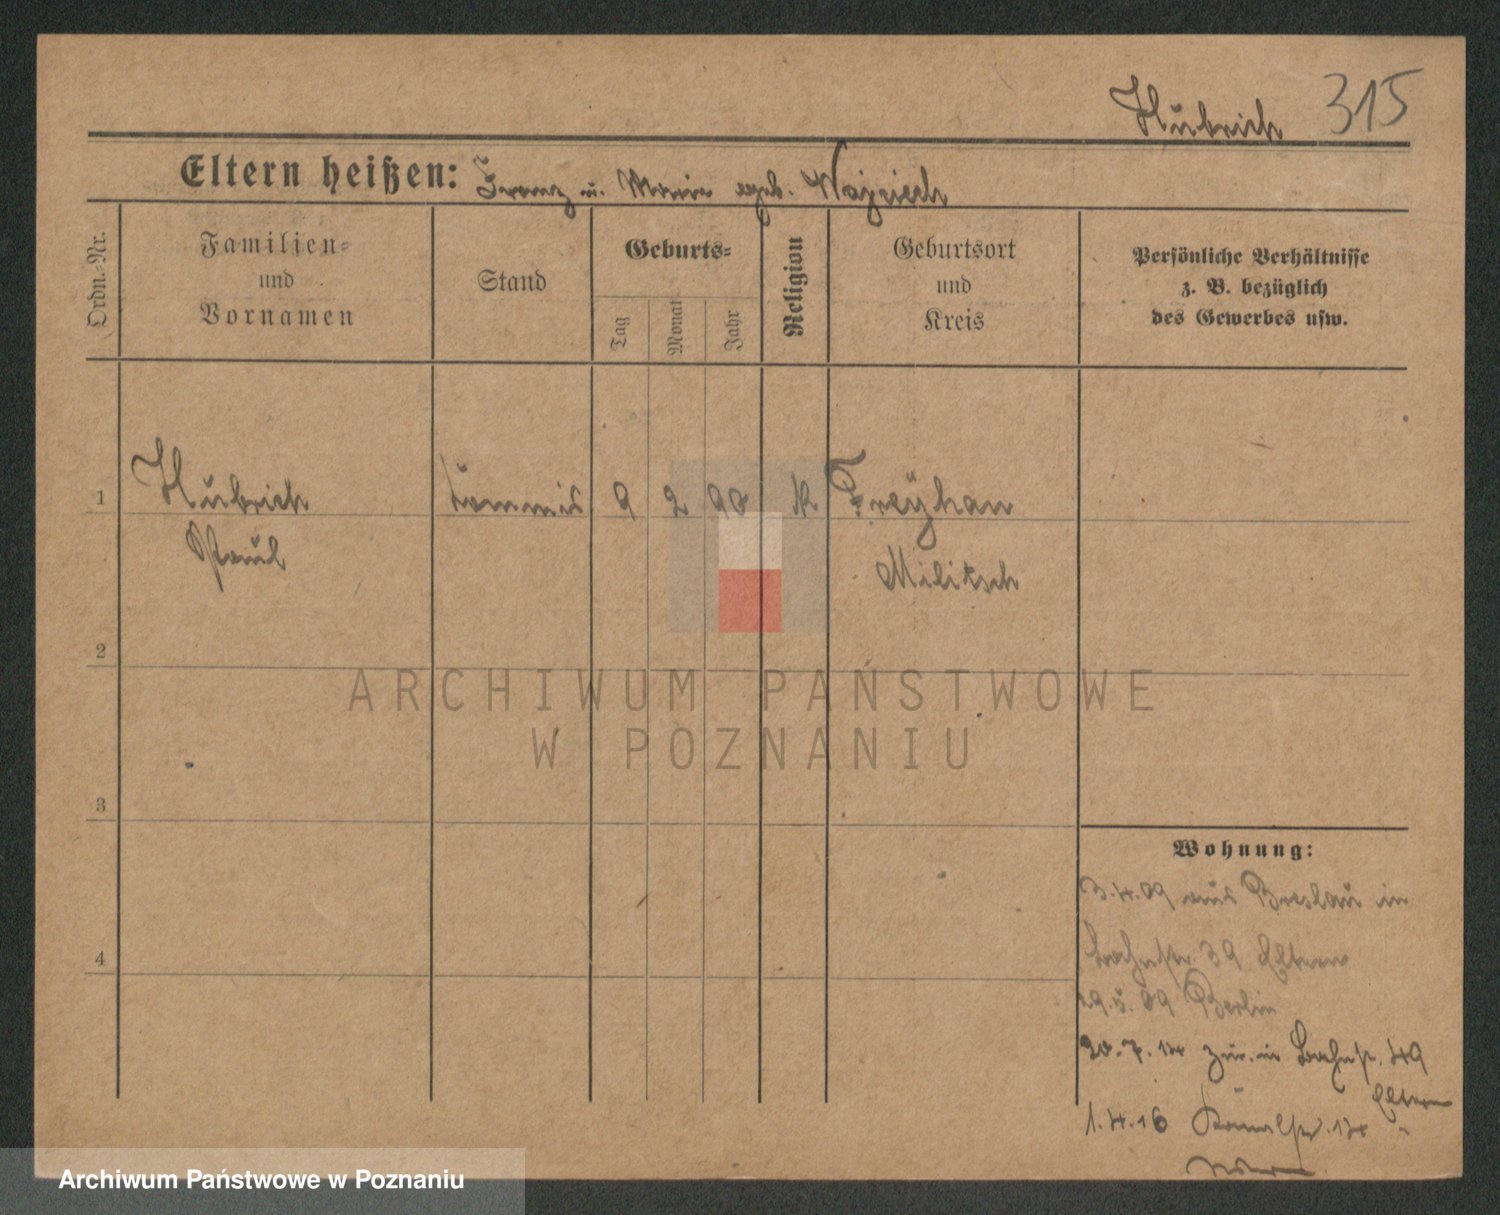 Hubrich 315
Eltern heißen: Franz u. Marie geb. Wojciech
Ordn.-Nr.
Familien-
und
Vornamen
Stand
Geburts-
Tag
Monat
Jahr
Religion
Geburtsort
und
Kreis
Persönliche Verhältnisse
z. B. bezüglich
des Gewerbes usw.
1 Hubrich 9 2 90 K Freyhan
Paul Militsch
2
3
4
ARCHIWUM PAŃSTWOWE
W POZNANIU
Wohnung:
3.4.09 aus Breslau in
Bahnstr. 39 Eltern
09 Berlin
20.7.14 zur. in Bahnstr. 49
Eltern
1.4.16 14 "
Archiwum Państwowe w Poznaniu